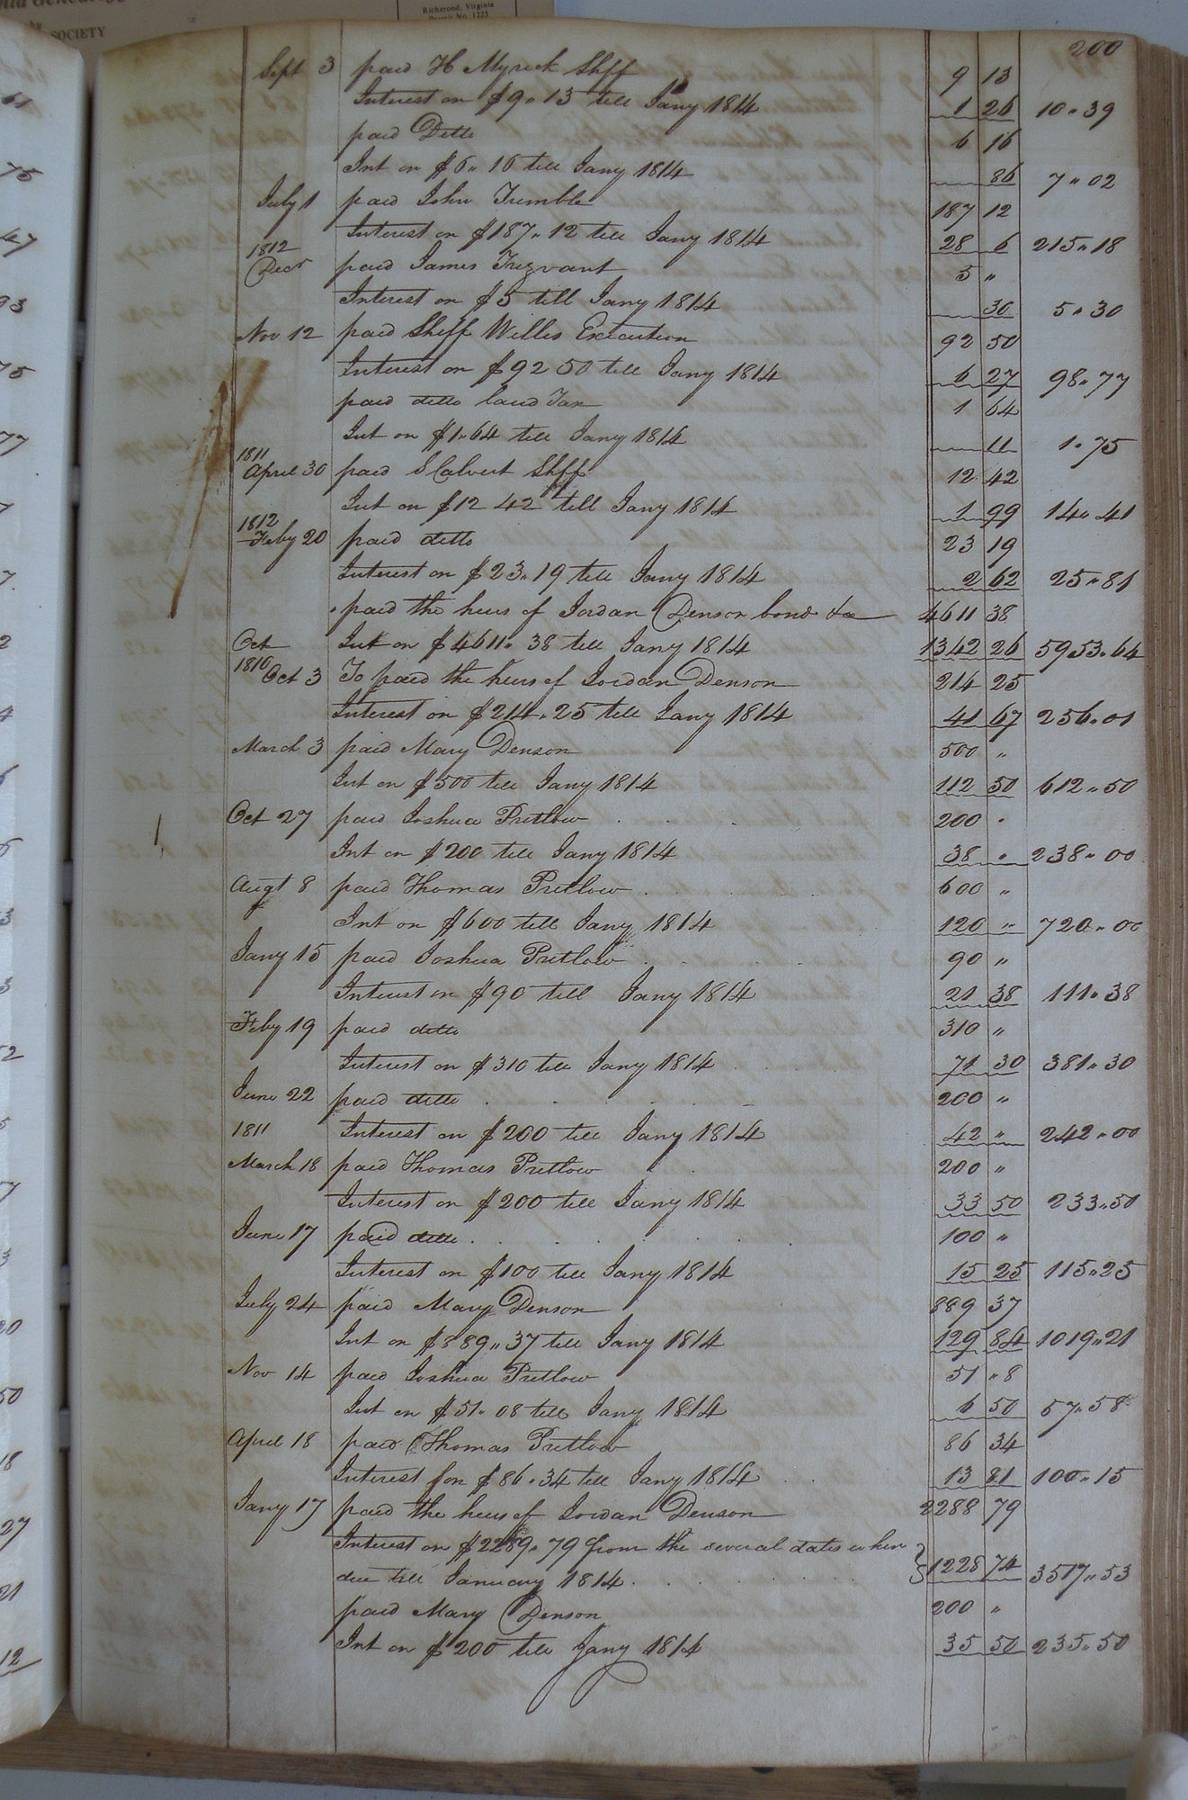 SOCIETY
Richmond, Virginia
Permit No. 1225
200
Sept 3 paid H Myrick Shff 9 13
Interest on $9„13 till Jany 1814 1 26 10„39
paid Ditto 6 16
Int on $6„16 till Jany 1814 86 7„02
July 1 paid John Trimble 187 12
Interest on $187„12 till Jany 1814 28 6 215„18
1812
Decr paid James Trezvant 5 „
Interest on $5 till Jany 1814 30 5„30
Nov 12 paid Shff Willis Execution 92 50
Interest on $92 50 till Jany 1814 6 27 98„77
paid ditto land Tax 1 64
Int on $1„64 till Jany 1814 11 1„75
1811
April 30 paid S Calvert Shff 12 42
Int on $12 42 till Jany 1814 1 99 14„41
1812
Feby 20 paid ditto 23 19
Interest on $23„19 till Jany 1814 2 62 25„81
paid the heirs of Jordan Denson bond &a 4611 38
Oct Int on $4611„38 till Jany 1814 1342 26 5953„64
1810 Oct 3 To paid the heirs of Jordan Denson 214 25
Interest on $214„25 till Jany 1814 41 67 256„01
March 3 paid Mary Denson 500 „
Int on $500 till Jany 1814 112 50 612„50
Oct 27 paid Joshua Pretlow 200 „
Int on $200 till Jany 1814 38 „ 238„00
Augt 8 paid Thomas Pretlow 600 „
Int on $600 till Jany 1814 120 „ 720„00
Jany 15 paid Joshua Pretlow 90 „
Interest on $90 till Jany 1814 21 38 111„38
Feby 19 paid ditto 310 „
Interest on $310 till Jany 1814 71 30 381„30
June 22 paid ditto 200 „
1811 Interest on $200 till Jany 1814 42 „ 242„00
March 18 paid Thomas Pretlow 200 „
Interest on $200 till Jany 1814 33 50 233„50
June 17 paid ditto 100 „
Interest on $100 till Jany 1814 15 25 115„25
July 24 paid Mary Denson 889 37
Int on $889„37 till Jany 1814 129 84 1019„21
Nov 14 paid Joshua Pretlow 51 „8
Int on $51„08 till Jany 1814 6 50 57„58
April 18 paid Thomas Pretlow 86 34
Interest on $86„34 till Jany 1814 13 81 100„15
Jany 17 paid the heirs of Jordan Denson 2288 79
Interest on $2289„79 from the several dates when
due till January 1814 1228 74 3517„53
paid Mary Denson 200 „
Int on $200 till Jany 1814 35 50 235„50